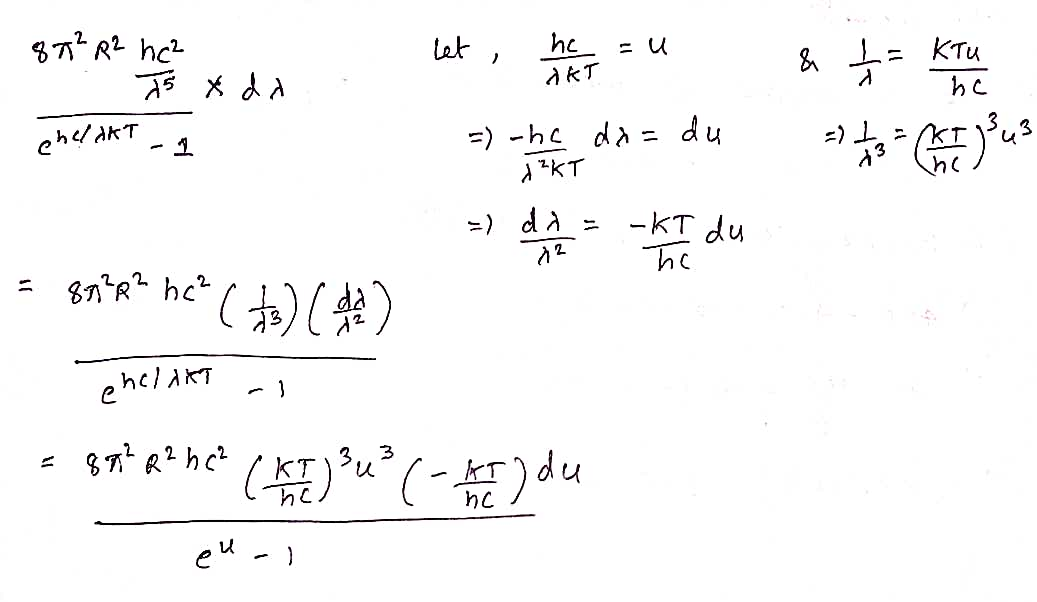 8π² R² hc²/λ⁵ × dλ / e^{hc/λKT} - 1
Let , hc/λKT = u
=) -hc/λ²KT dλ = du
=) dλ/λ² = -KT/hc du
& 1/λ = KTu/hc
=) 1/λ³ = (KT/hc)³u³
= 8π²R² hc² (1/λ³)(dλ/λ²) / e^{hc/λKT} - 1
= 8π² R² hc² (KT/hc)³u³ (-KT/hc) du / e^u - 1